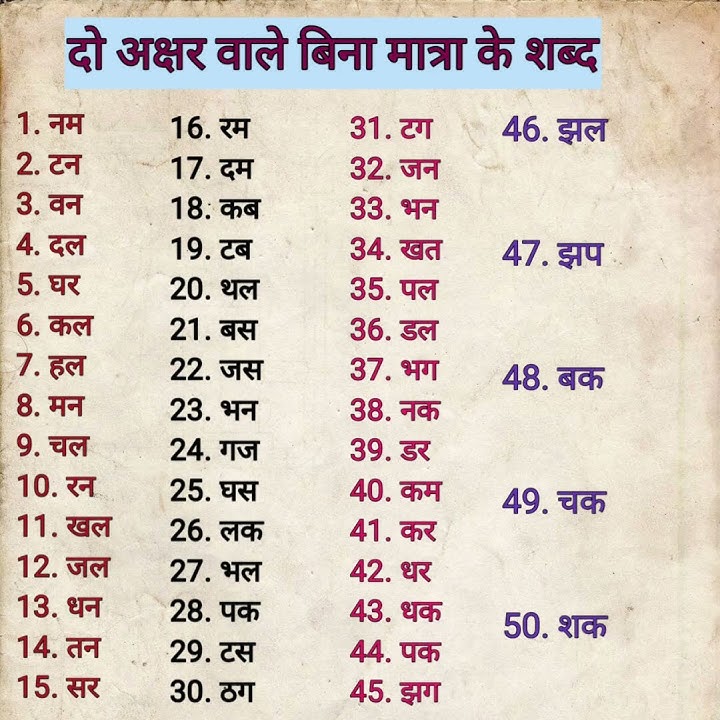 दो अक्षर वाले बिना मात्रा के शब्द
1. नम
2. टन
3. वन
4. दल
5. घर
6. कल
7. हल
8. मन
9. चल
10. रन
11. खल
12. जल
13. धन
14. तन
15. सर
16. रम
17. दम
18. कब
19. टब
20. थल
21. बस
22. जस
23. भन
24. गज
25. घस
26. लक
27. भल
28. पक
29. टस
30. ठग
31. टग
32. जन
33. भन
34. खत
35. पल
36. डल
37. भग
38. नक
39. डर
40. कम
41. कर
42. धर
43. धक
44. पक
45. झग
46. झल
47. झप
48. बक
49. चक
50. शक